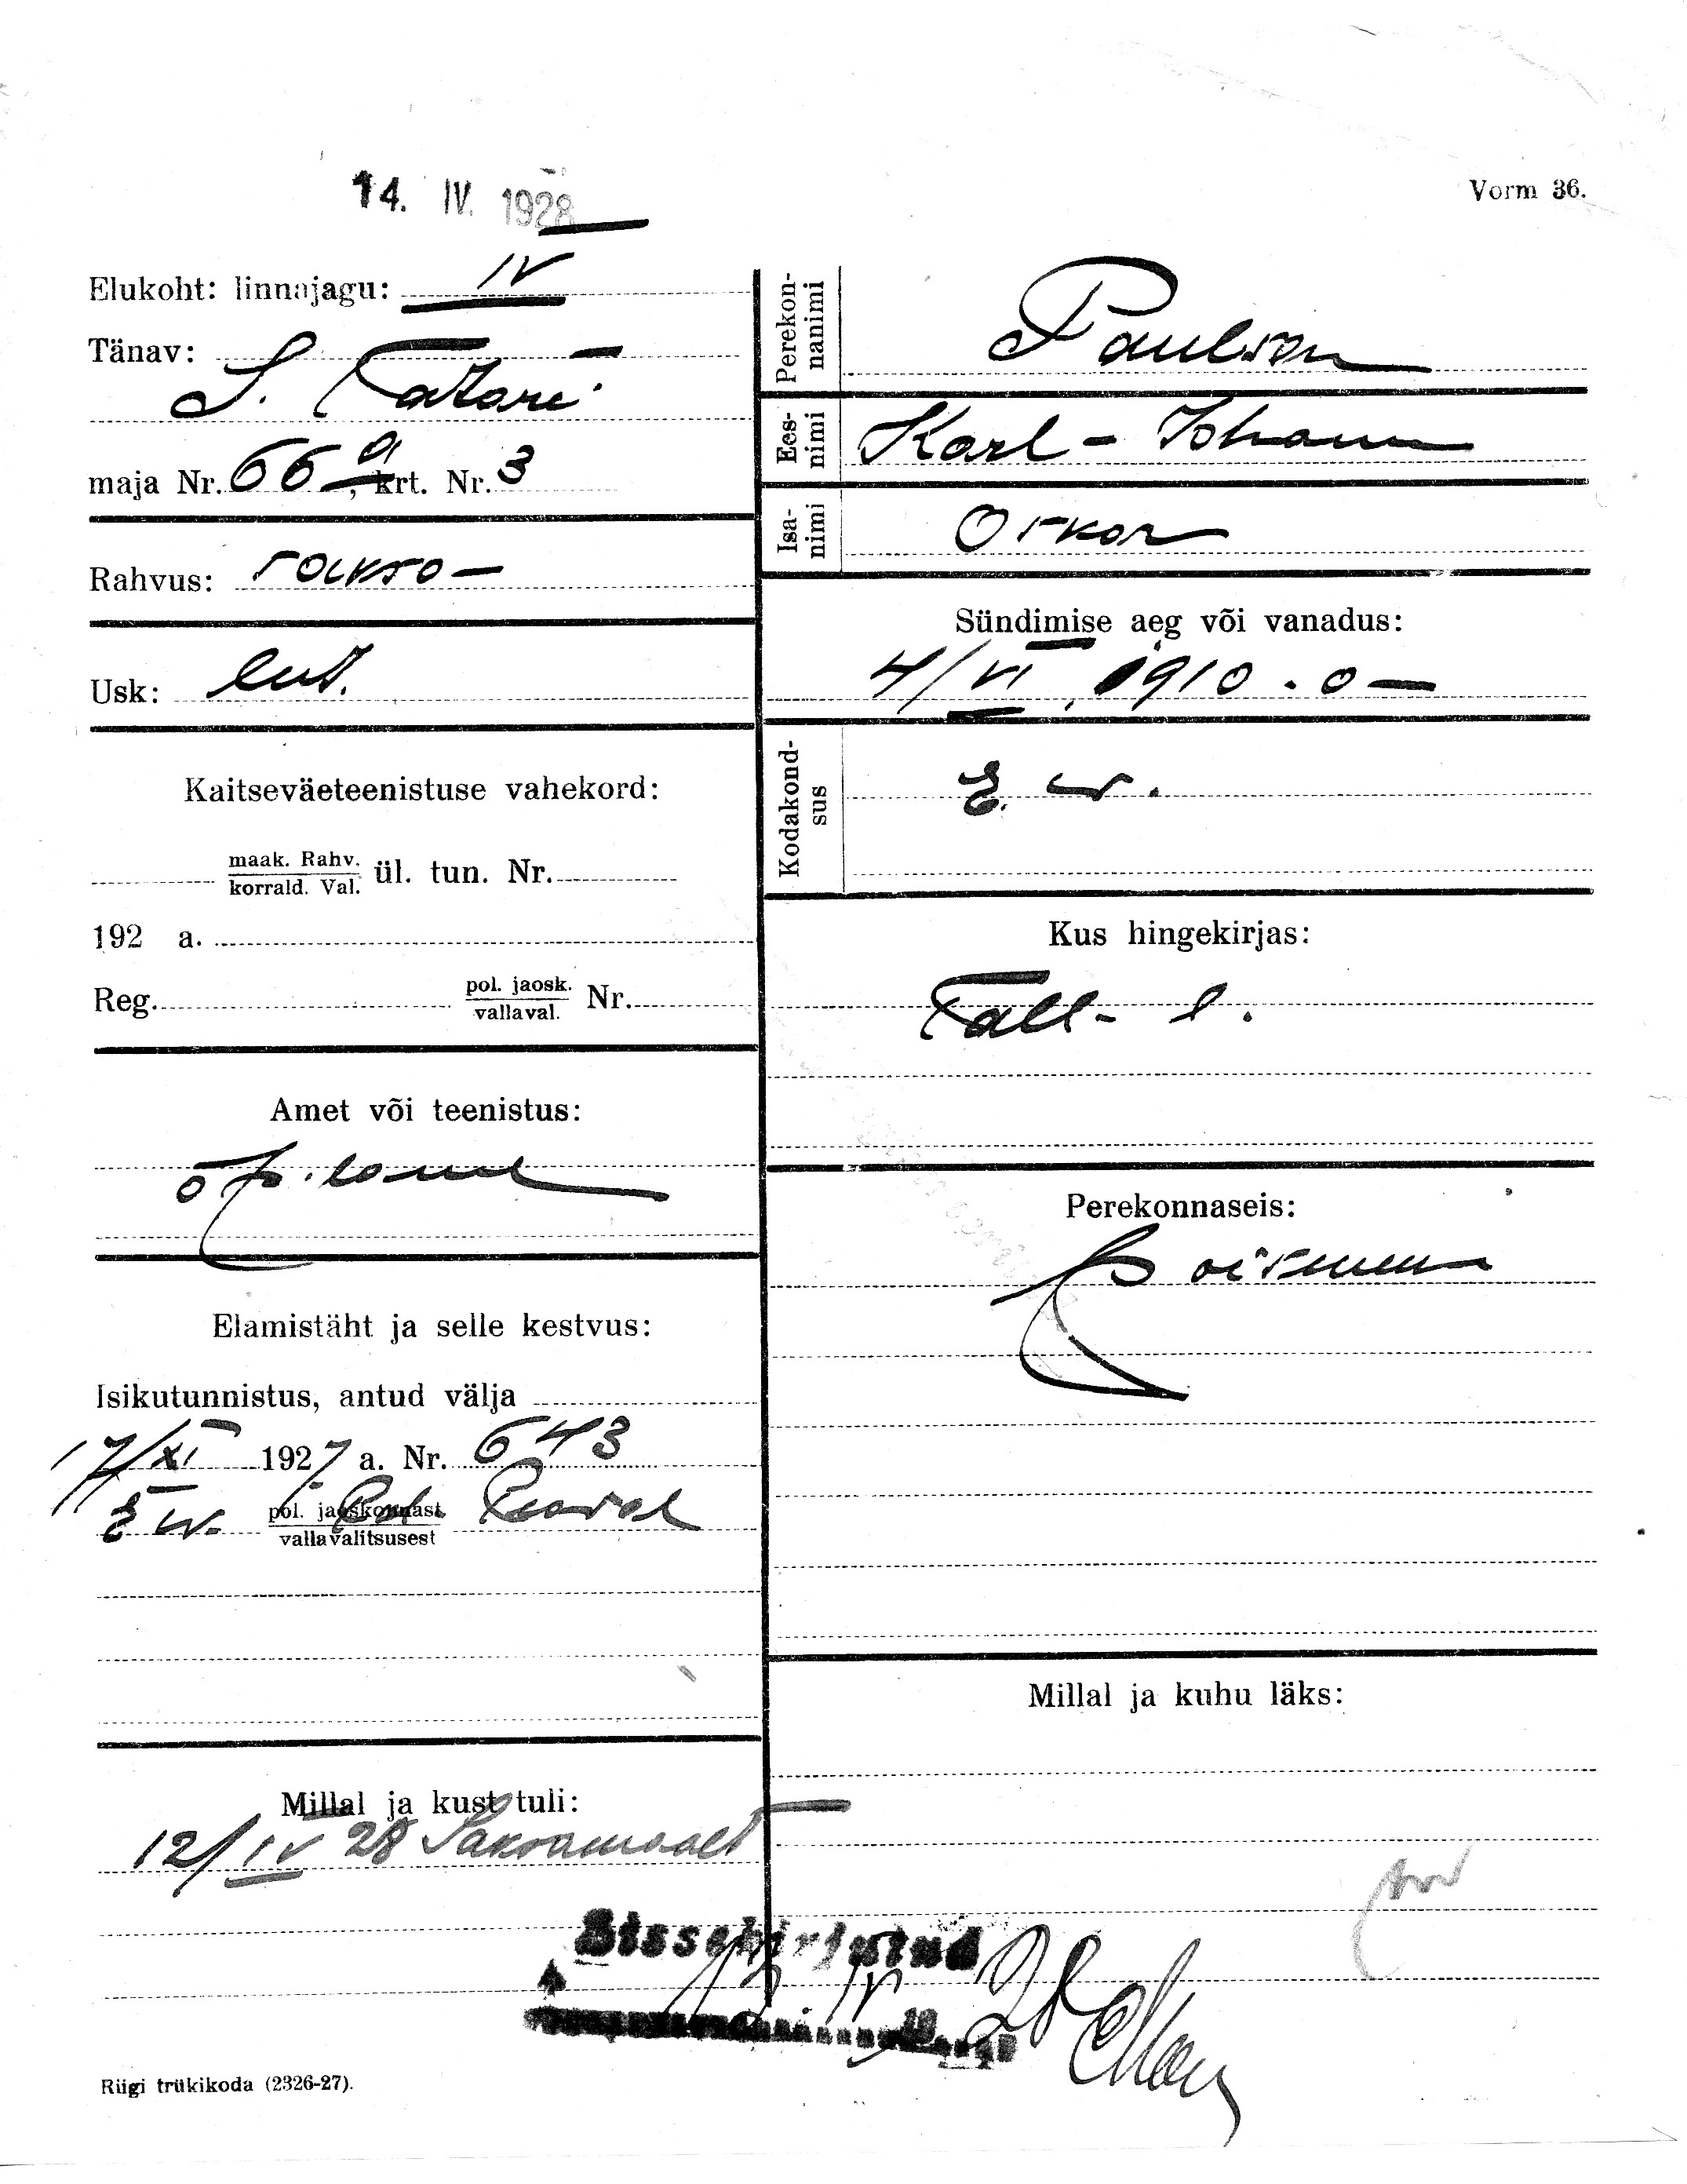 14. IV. 1928
Vorm 36.
Elukoht: linnajagu: IV
Tänav:
S. Tatari
maja Nr. 66 a, krt. Nr. 3
Rahvus: saksa
Usk: lut.
Kaitseväeteenistuse vahekord:
maak. Rahv.
korrald. Val. ül. tun. Nr.
192 a.
Reg. pol. jaosk.
vallaval. Nr.
Amet või teenistus:
õpilane
Elamistäht ja selle kestvus:
Isikutunnistus, antud välja
17/XI 1927 a. Nr. 643
E. w. pol. jaoskonnast
vallavalitsusest
Millal ja kust tuli:
12/IV 28 Saksamaalt
Perekon-
nanimi
Paulsen
Ees-
nimi
Karl - Johann
Isa-
nimi
Oskar
Sündimise aeg või vanadus:
4/VI 1910. a
Kodakond-
sus
E. w.
Kus hingekirjas:
Tall. l.
Perekonnaseis:
poismees
Millal ja kuhu läks:
Sissekirjutud
IV 28
Riigi trükikoda (2326-27).